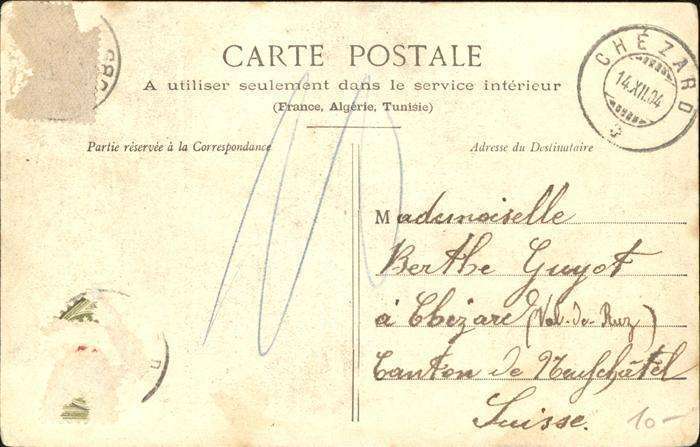 CARTE POSTALE
A utiliser seulement dans le service intérieur
(France, Algérie, Tunisie)
Partie réservée à la Correspondance
Adresse du Destinataire
CHÉZARD
14.XII.04
Mademoiselle
Berthe Guyot
à Chézard (Val-de-Ruz)
Canton de Neuchâtel
Suisse.
10-